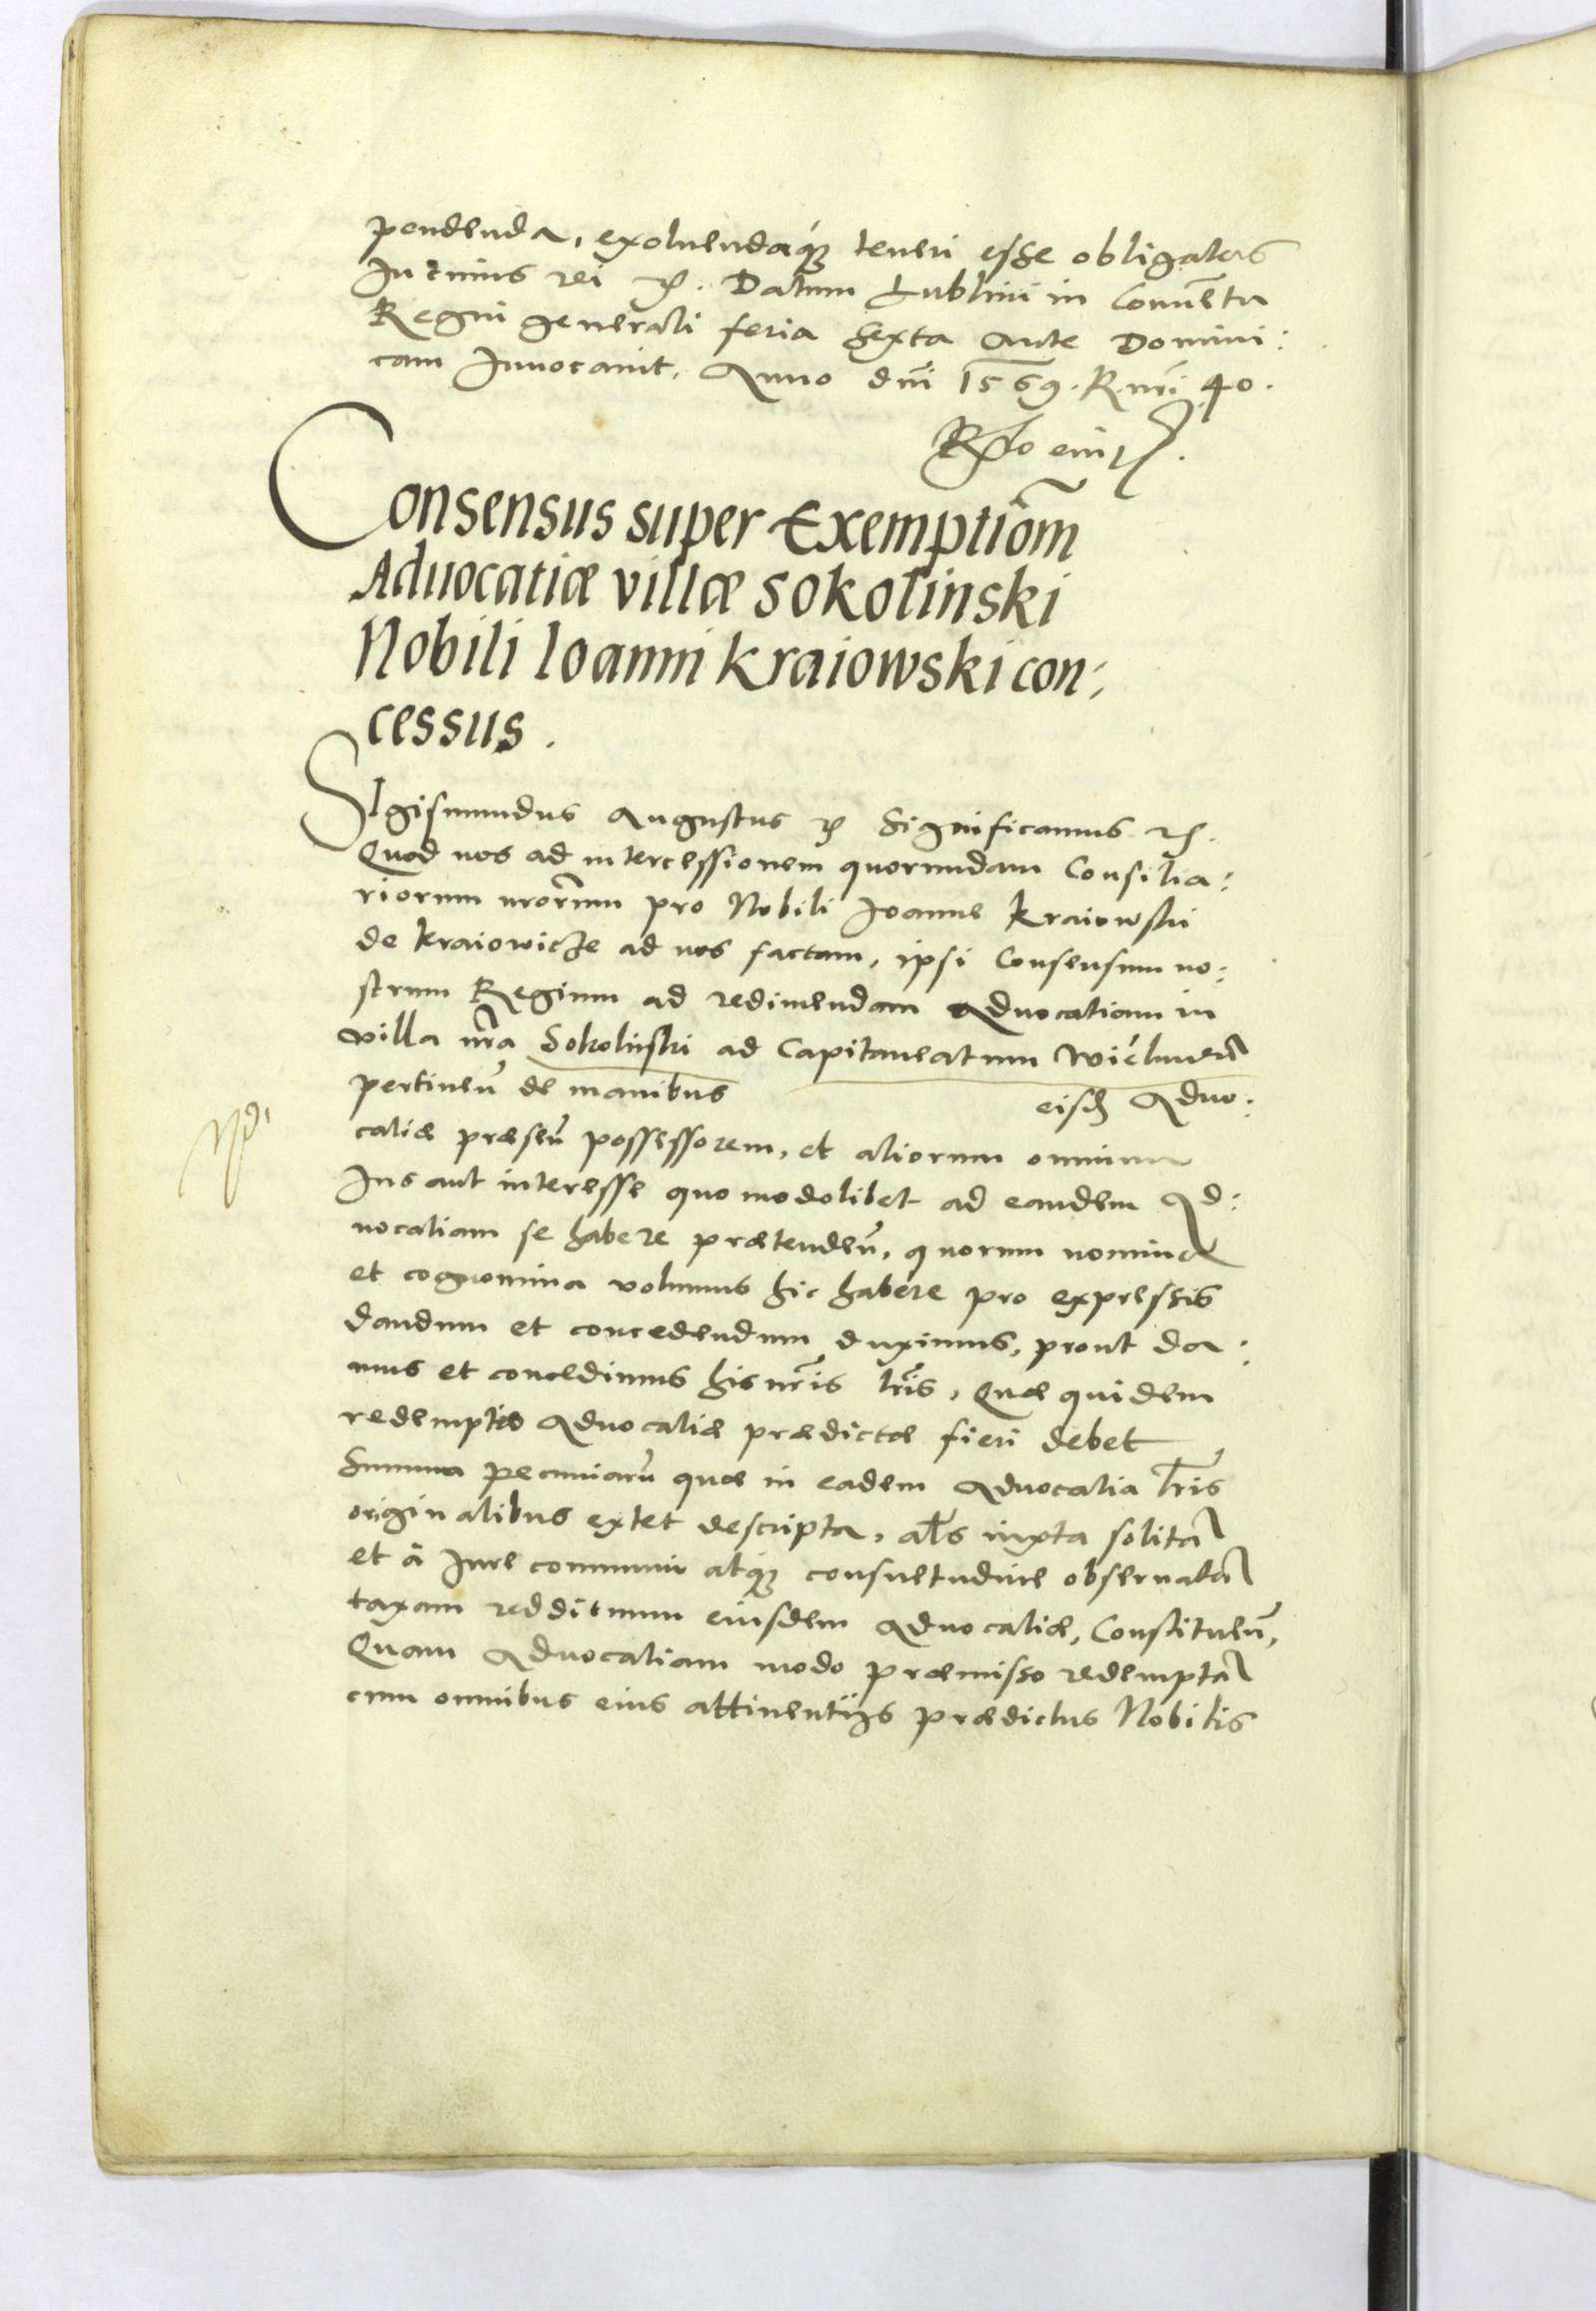 pendenda, exoluendaq; teneri esse obligatos
In cuius rei etc. Datum Lublini in Conuentu
Regni generali feria sexta ante Domini:
cam Inuocauit. Anno dni 1569. R. nri 40.
Consensus super Exemptiom
Aduocatiæ villæ Sokolinski
Nobili Ioanni Kraiowski con:
cessus.
SIgismundus Augustus etc Significamus etc.
Quod nos ad intercessionem quorundam Consilia:
riorum nrorum pro Nobili Joanne Kraiowski
de Kraiowicze ad nos factam, ipsi Consensum no:
strum Regium ad redimendam Aduocatiam in
villa nra Sokolinski ad Capitaneatum Wielunen
pertinen de manibus eisd Aduo:
catiæ præsen possessorem, et aliorum omnium
Ius aut interesse quomodolibet ad eandem Ad:
uocatiam se habere prætenden, quorum nomina
et cognomina volumus hic habere pro expressis
dandum et concedendum duximus, prout da:
mus et concedimus his nris lris, Quæ quidem
redemptio Aduocatiæ prædictæ fieri debet
Summa pecuniaru quæ in eadem Aduocatia lris
originalibus extet descripta, als iuxta solita
et à Iure communi atq; consuetudine obseruata
taxam reddituum eiusdem Aduocatiæ, Constituen,
Quam Aduocatiam modo præmisso redempta
cum omnibus eius attinentijs prædictus Nobilis